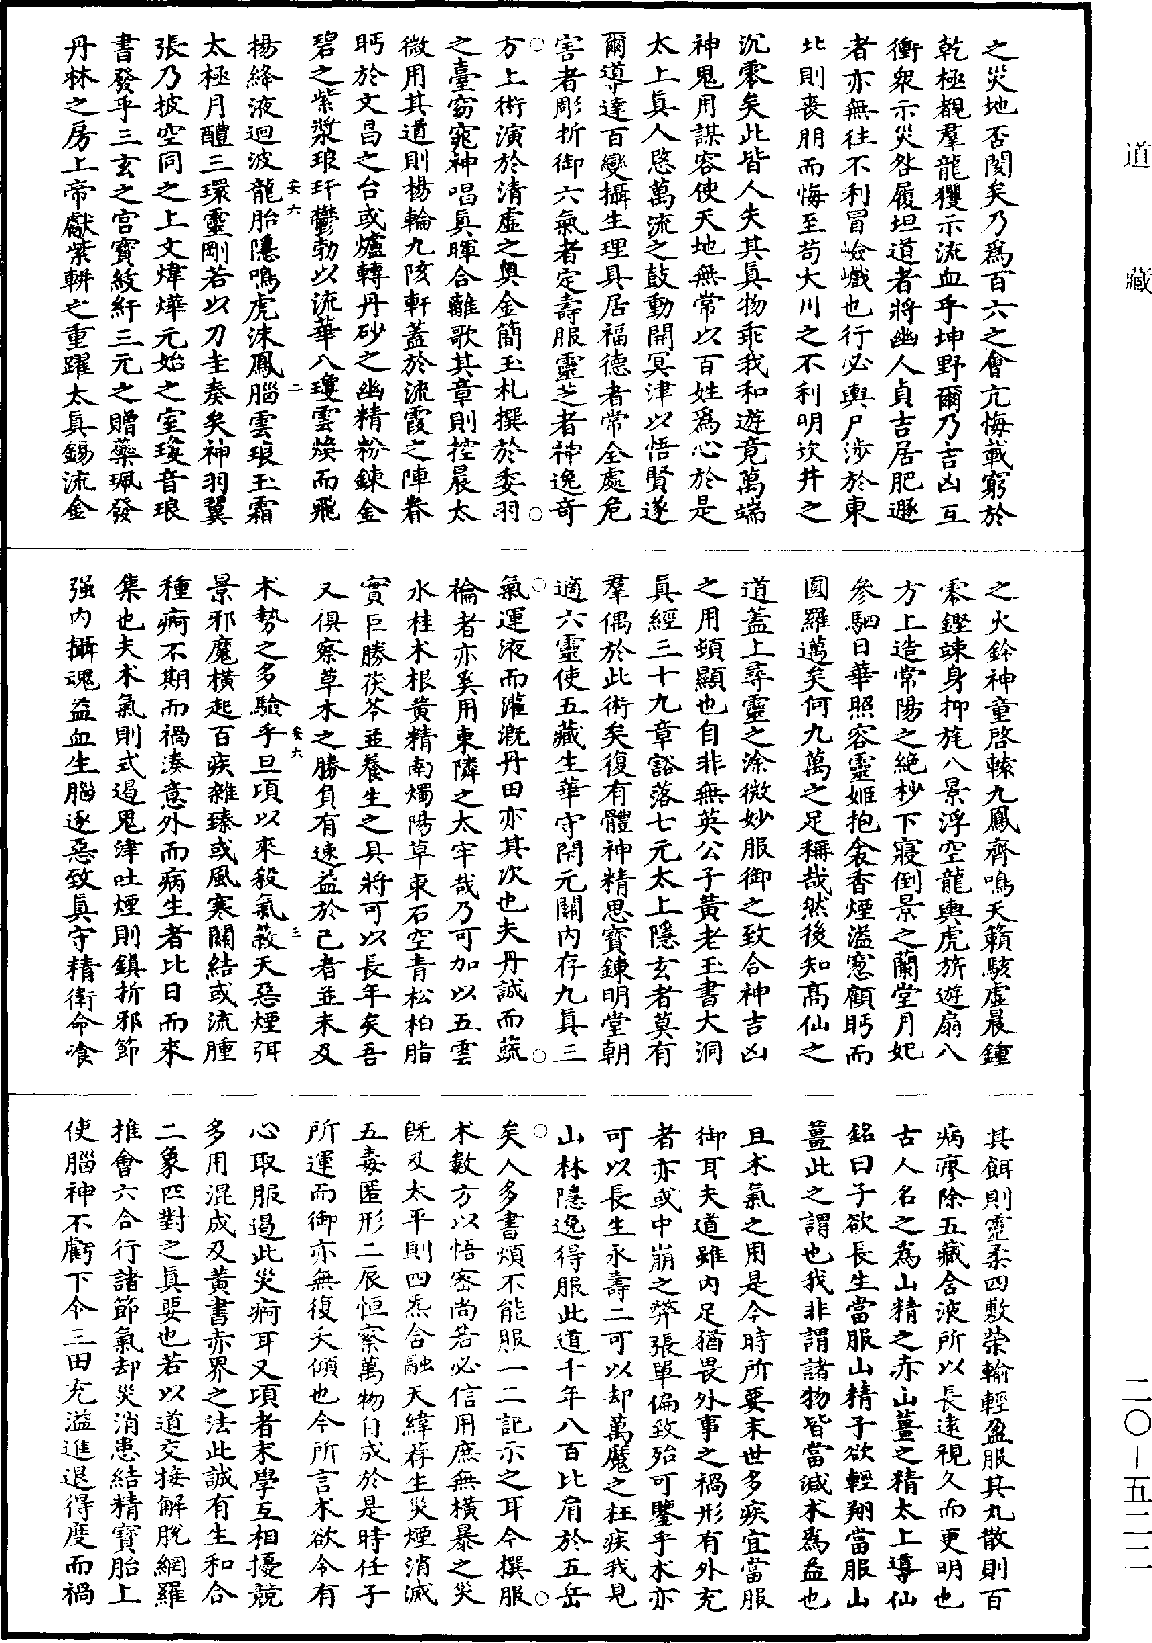 道藏
之災地否閡矣乃爲百六之會亢悔載窮於
乾極覩羣龍玃示流血乎坤野爾乃吉凶互
衝衆示災咎履坦道者將幽人貞吉居肥遯
者亦無往不利冒嶮巇也行必輿尸涉於東
北則喪朋而悔至苟大川之不利明坎井之
沉零矣此皆人失其真物乖我和遊竟萬端
神鬼用謀容使天地無常以百姓爲心於是
太上真人愍萬流之鼓動開冥津以悟賢遂
爾導達百變攝生理具居福德者常全處危
害者彫折御六氣者定壽服靈芝者神逸奇
方上術演於清虛之奥金簡玉札撰於委羽
之臺窈窕神唱真暉合離歌其章則控晨太
微用其道則楊輪九陔軒蓋於流霞之陣眷
眄於文昌之台或爐轉丹砂之幽精粉鍊金
碧之紫漿琅玕鬱勃以流華八瓊雲煥而飛
揚絳液迴波龍胎隱鳴虎沫鳳腦雲琅玉霜
太極月醴三環靈剛若以刀圭奏矣神羽翼
張乃披空同之上文煒燁元始之室瓊音琅
書發乎三玄之宫寶紋紆三元之贈藥珮發
丹林之房上帝獻紫軿之重躍太真錫流金
安六
二
之火鈴神童啓轅九鳳齊鳴天籟駭虛晨鍾
零鏗竦身抑旄八景浮空龍輿虎旂遊扇八
方上造常陽之絶杪下寢倒景之蘭堂月妃
參駟日華照容靈姬抱衾香煙溢窻顧眄而
圓羅邁矣何九萬之足稱哉然後知高仙之
道蓋上尋靈之涂微妙服御之致合神吉凶
之用頓顯也自非無英公子黄老玉書大洞
真經三十九章豁落七元太上隱玄者莫有
羣偶於此術矣復有體神精思寶鍊明堂朝
適六靈使五藏生華守閉元關内存九真三
氣運液而灌漑丹田亦其次也夫丹誠而蔬
禴者亦奚用東隣之太牢哉乃可加以五雲
水桂术根黄精南燭陽草東石空青松柏脂
實巨勝茯苓並養生之具將可以長年矣吾
又俱察草木之勝負有速益於己者並未及
术勢之多驗乎且項以來殺氣蔽天惡煙弭
景邪魔横起百疾雜臻或風寒關結或流腫
種痾不期而禍湊意外而病生者比日而來
集也夫术氣則式遏鬼津吐煙則鎮折邪節
强内攝魂益血生腦逐惡致真守精衛命飡
安六
三
其餌則靈柔四敷榮輸輕盈服其丸散則百
病瘳除五藏含液所以長遠視久而更明也
古人名之爲山精之赤山薑之精太上導仙
銘曰子欲長生當服山精子欲輕翔當服山
薑此之謂也我非謂諸物皆當減术爲益也
且术氣之用是今時所要末世多疾宜當服
御耳夫道雖内足猶畏外事之禍形有外充
者亦或中崩之弊張單偏致殆可鑒乎术亦
可以長生永壽二可以却萬魔之枉疾我見
山林隱逸得服此道千年八百比肩於五岳
矣人多書煩不能服一二記示之耳今撰服
术數方以悟密尚若必信用庶無横暴之災
既及太平則四炁合融天緯荐生災煙消滅
五毒匿形二辰恒察萬物自成於是時任子
所運而御亦無復夭傾也今所言术欲令有
心取服遏此災痾耳又項者末學互相擾競
多用混成及黄書赤界之法此誠有生和合
二象匹對之真要也若以道交接解脱網羅
推會六合行諸節氣却災消患結精寶胎上
使腦神不虧下令三田充溢進退得度而禍
二〇—五二二